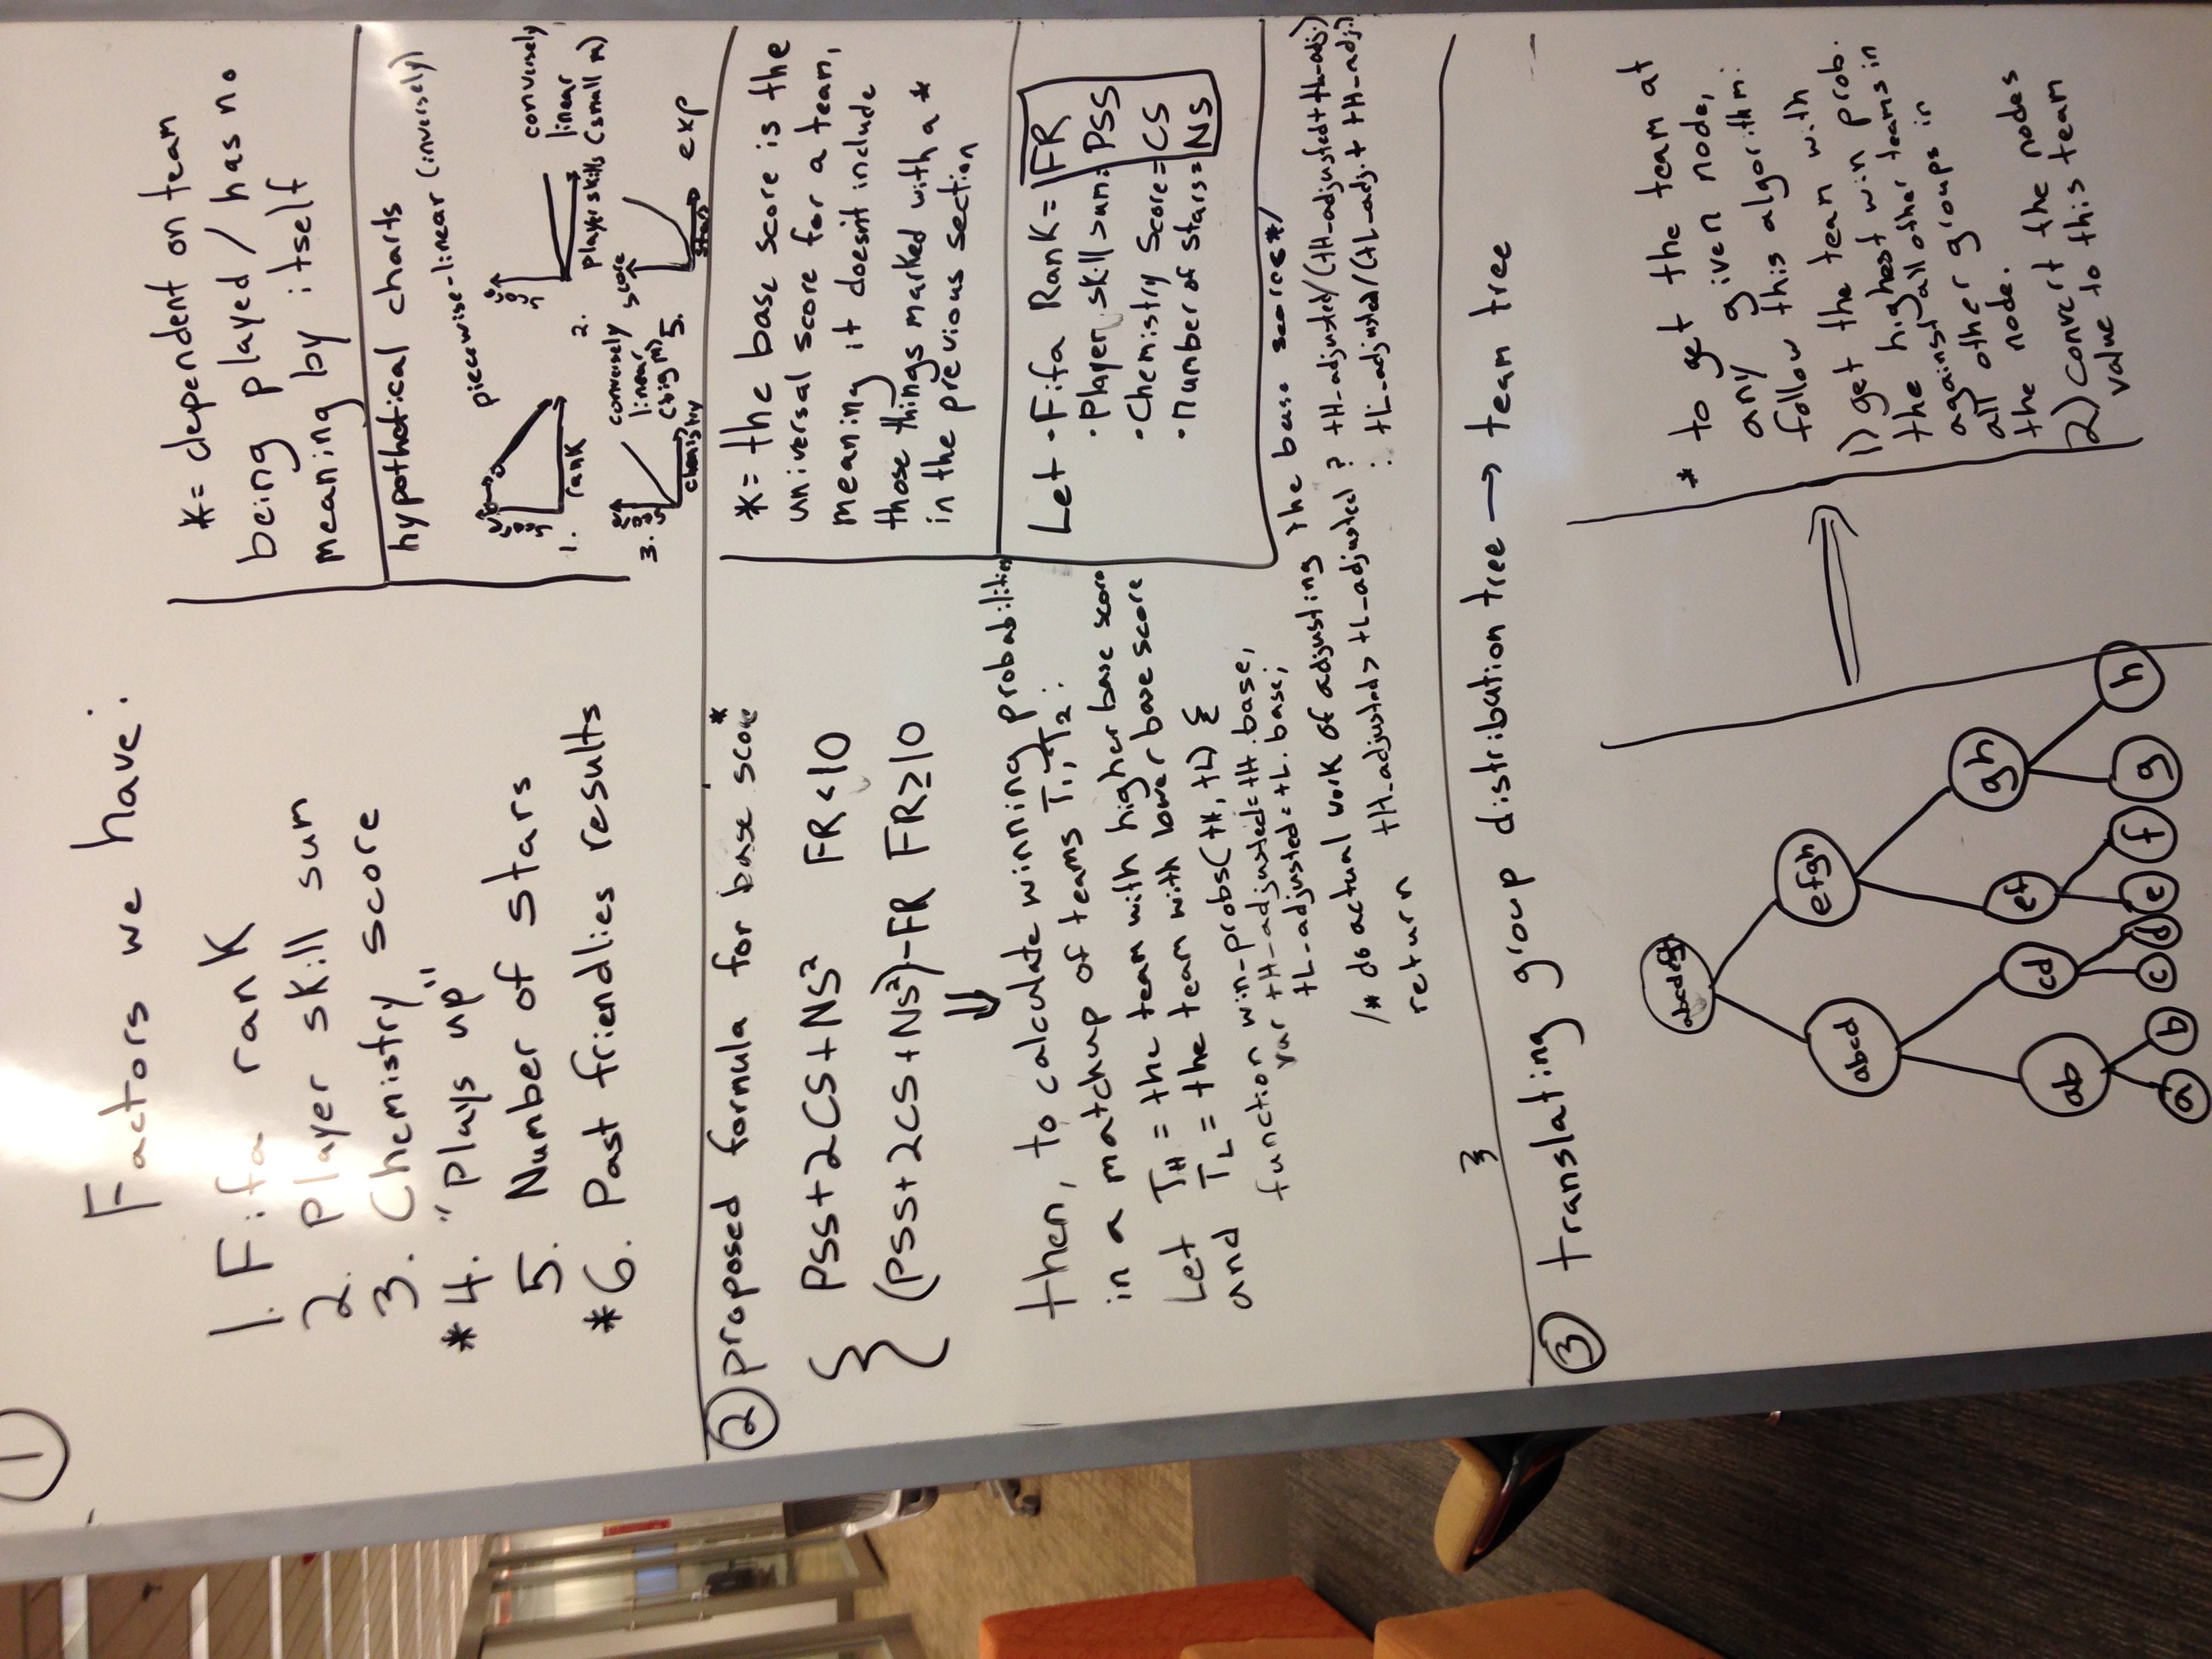 1
Factors we have:
1. Fifa rank
2. Player skill sum
3. Chemistry score
*4. "Plays up"
5. Number of stars
*6. Past friendlies results
*= dependent on team
being played / has no
meaning by itself
hypothetical charts
piecewise-linear (inversely)
1.
score
rank
2.
score
player skills
conversely
linear
(small m)
3.
score
chemistry
conversely
linear
(big m)
5.
score
stars
exp
2 proposed formula for base score*
{ PSS+2CS+NS² FR<10
(PSS+2CS+NS²)-FR FR≥10
⇓
then, to calculate winning probabilities
in a matchup of teams T₁, T₂:
Let TH = the team with higher base score
and TL = the team with lower base score
function win_probs(tH, tL) {
var tH_adjusted=tH.base,
tL_adjusted=tL.base;
/* do actual work of adjusting the base scores*/
return tH_adjusted > tL_adjusted ? tH_adjusted/(tH_adjusted+tL_adj.)
: tL_adjusted/(tL_adj.+ tH_adj.)
}
*= the base score is the
universal score for a team,
meaning it doesn't include
those things marked with a *
in the previous section
Let •Fifa Rank= FR
•Player skill sum= PSS
•Chemistry Score= CS
•number of stars= NS
3 translating group distribution tree → team tree
abcdefgh
abcd
efgh
ab
cd
ef
gh
a
b
c
d
e
f
g
h
* to get the team at
any given node,
follow this algorithm:
1) get the team with
the highest win prob.
against all other teams in
all other groups in
the node.
2) convert the nodes
value to this team